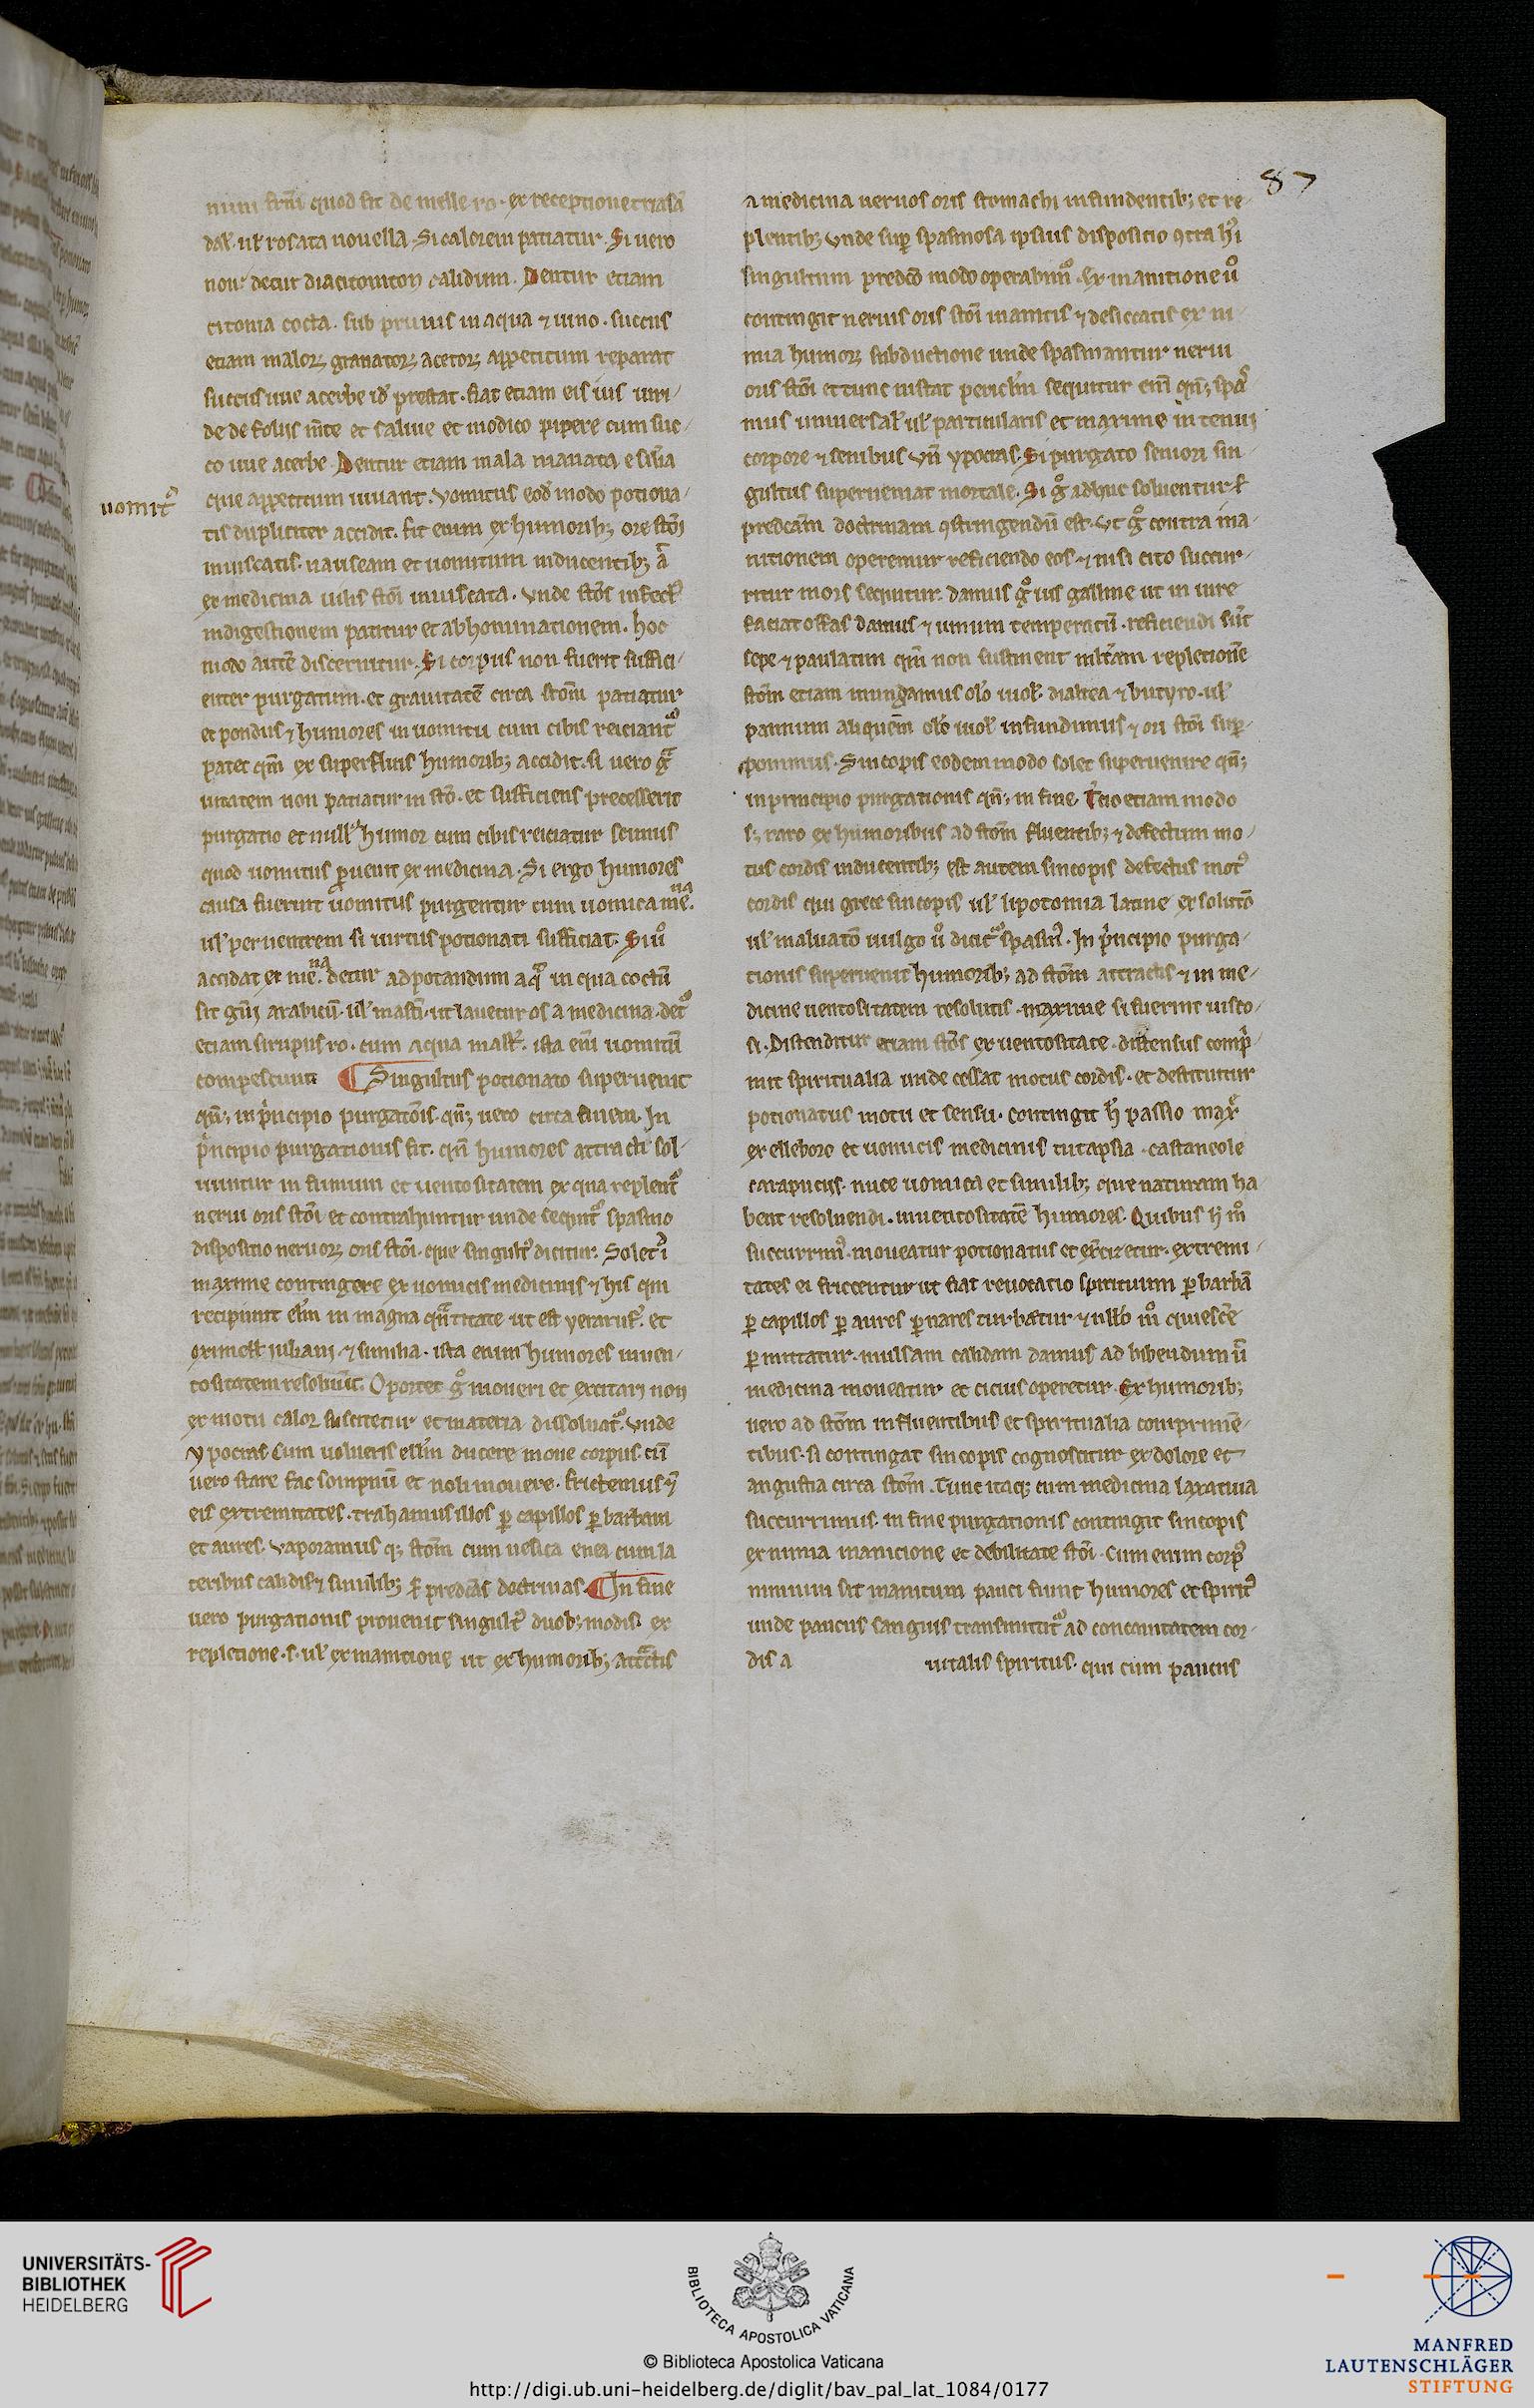 87
num frm̄ quod fit de melle ro. et receptione triasā
dal̄. ul̄ rosata nouella. Si calorem patiatur. Si uero
non. detur diacitoniton calidum. Dentur etiam
citonia cocta. sub prunis in aqua ⁊ uino. succus
etiam maloꝝ granatoꝝ acetoꝝ appetitum reparat
succus uue acerbe id̄ prestat. fiat etiam eis ius uiri-
de de foliis m̄te et saluie et modico pipere cum suc-
co uue acerbe. Dentur etiam mala
que appetitum iuuant. Vomitus eod̄ modo potiona-
uomit᷒
tis dupliciter accidit. fit enim ex humorib; ore stōi
inuiscatis. nauseam et uomitum inducentib; a̅
ex medicina uilis stōi inuiscata. Vnde stōs infect᷒
indigestionem patitur et abhominationem. hoc
modo autē discernitur. Si corpus non fuerit suffici-
enter purgatum. et grauitatē circa stōm patiatur
et pondus ⁊ humores in uomitu cum cibis reiciant᷒
patet qm̄ ex superfluis humorib; accidit. si uero gͣ
uitatem non patiatur in stō. et sufficiens precesserit
purgatio et null᷒ humor cum cibis reiciatur scimus
quod uomitus ꝓuenit ex medicina. Si ergo humores
causa fuerint uomitus purgentur cum uomica mē.na
ul̄ per uentrem si uirtus potionati sufficiat. Si ū
accidat ex mē.na detur ad potandum aqͣ in qua coctū
sit gūi arabicū. ul̄ mastī. ut lauetur os a medicina. det᷒
etiam sirupus ro. cum aqua mast᷒. ista em̄ uomitū
compescunt ¶ Singultus potionato superuenit
qn̄; in p̄ncipio purgatōis. qn̄; uero circa finem. In
p̄ncipio purgationis fit. qn̄ humores attracti sol-
uuntur in fumum et uentositatem ex qua replent᷒
nerui oris stōi et contrahuntur unde sequit᷒ spasmo
dispositio neruoꝝ oris stōi. que singult᷒ dicitur. Solet ī
maxime contingere ex uomicis medicinis ⁊ his qui
recipiunt elm̄ in magna qn̄titate ut est yeraruf᷒. et
oximell᷒ iuliani. ⁊ similia. ista enim humores in uen-
tositatem resoluūt. Oportet gͦ moueri et excitari non
ex motu calor suscitetur et materia dissoluat᷒. Vnde
ypocras. Cum uolueris ellm̄ ducere moue corpus. cū
uero stare fac sompnū et noli mouere. frictemus ⁊
eis extremitates. trahamus illos ꝑ capillos ꝑ barbam
et aures. Vaporamus q; stōm cum uesica enea cum la
teribus calidis ⁊ similib; ẜ predcās doctrinas. ¶ In fine
uero purgationis prouenit singult᷒ duob; modis. ex
repletione. s. ul̄ ex inanitione ut ex humorib; attͣctis
a medicina neruos oris stomachi infundentib; et re-
plentib; vnde suꝑ spasmosa ipsius dispositio ꝯtra hⁱ
singultum predcō modo operabim᷒. Ex inanitione ū
contingit neruis oris stōi inanitis ⁊ desiccatis ex ni-
mia humoꝝ subductione unde spasmantur nerui
oris stōi et tunc instat pericl̄m sequitur em̄ qn̄; spa-
mus uniuersal̄ ul̄ particularis et maxime in tenui
corpore ⁊ senibus vn̄ ypocras. Si purgato seniori sin-
gultus superueniat mortale. Si gͦ adhuc soluentur ẜ
predcām doctrinam ꝯstringendū est. Vt gͦ contra ina-
nitionem operemur reficiendo eos ⁊ nisi cito succur-
ritur mors sequitur. damus gͦ ius galline ut in iure
faciat offas damus ⁊ uinum temperatū. reficiendi sūt
sepe ⁊ paulatim qm̄ non sustinent mltām repletionē
stōm etiam inungamus olō uiol᷒. dialtea ⁊ butyro. ul̄
pannum aliquem olō uiol᷒ infundimus ⁊ ori stōi suꝑ-
ponimus. Sincopis eodem modo solet superuenire qn̄;
in principio purgationis qn̄; in fine. T̄cio etiam modo
s; raro ex humoribus ad stōm fluentib; ⁊ defectum mo-
tus cordis inducentib; est autem sincopis defectus mot᷒
cordis qui grece sincopis ul̄ lipotomia latine exolutō
ul̄ maluatō uulgo ū dicit᷒ spasm᷒. In p̄ncipio purga-
tionis superuenit humorib; ad stōm attractis ⁊ in me-
dicine uentositatem resolutis. maxime si fuerint uisco-
si. Distenditur etiam stōs ex uentositate. distensus comp̄-
mit spiritualia unde cessat motus cordis. et destituitur
potionatus motu et sensu. contingit h̄ passio max̄
ex elleboro et uomicis medicinis ut tapsia. castaneole
catapuciis. nuce uomica et similib; que naturam ha
bent resoluendi. in uentositatē humores. Quibus h̄ m̊
succurrim᷒. moueatur potionatus et ex̄cizetur. extremi-
tates ei friccentur ut fiat reuocatio spirituum ꝑ barbā
ꝑ capillos ꝑ aures ꝑ nares turbetur ⁊ ullō m̊ quiescē
ꝑmittatur. mulsam calidam damus ad bibendum ū
medicina moueatur et cicius operetur. Ex humorib;
uero ad stōm influentibus et spiritualia comprimē-
tibus. si contingat sincopis cognoscitur ex dolore et
angustia circa stōm. Tunc itaq; cum medicina laxatiua
succurrimus. in fine purgationis contingit sincopis
ex nimia inanicione et debilitate stōi. Cum enim corp᷒
nimium sit inanitum pauci fiunt humores et spirit᷒
unde paucus sanguis transmittit᷒ ad concauitatem cor-
dis a uitalis spiritus. qui cum paucus
UNIVERSITÄTS-
BIBLIOTHEK
HEIDELBERG
BIBLIOTECA APOSTOLICA VATICANA
© Biblioteca Apostolica Vaticana
http://digi.ub.uni-heidelberg.de/diglit/bav_pal_lat_1084/0177
MANFRED
LAUTENSCHLÄGER
STIFTUNG